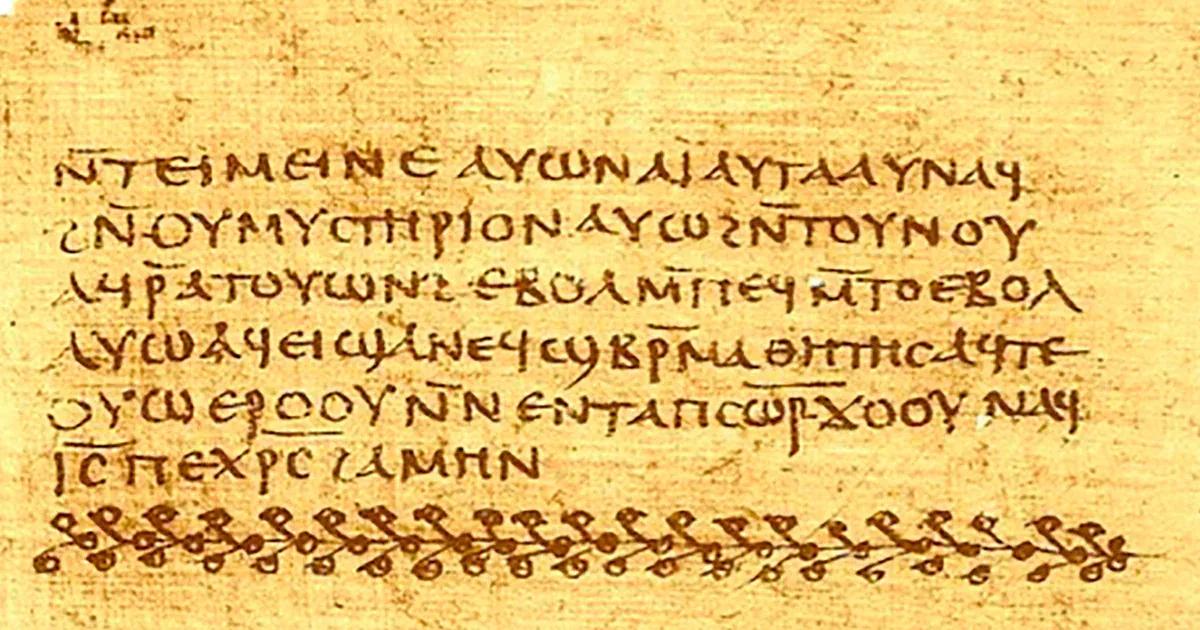 ⲛ̄ⲧⲉⲓⲙⲉⲓⲛⲉ ⲁⲩⲱ ⲛⲁⲓ ⲁⲩⲧⲁⲁⲩ ⲛⲁϥ
ϩⲛ̄ ⲟⲩⲙⲩⲥⲧⲏⲣⲓⲟⲛ ⲁⲩⲱ ϩⲛ̄ ⲧⲟⲩⲛⲟⲩ
ⲁϥⲣ̄ⲁⲧⲟⲩⲱⲛϩ ⲉⲃⲟⲗ ⲙ̄ⲡⲉϥⲙ̄ⲧⲟ ⲉⲃⲟⲗ
ⲁⲩⲱ ⲁϥⲉⲓ ϣⲁ ⲛⲉϥϣⲃⲣ̄ⲙⲁⲑⲏⲧⲏⲥ ⲁϥⲧⲉ
ⲟⲩⲱ ⲉⲣⲟⲟⲩ ⲛ̄ⲛⲉⲛⲧⲁ ⲡⲥⲱ̅ⲣ̅ ϫⲟⲟⲩ ⲛⲁϥ
ⲓ̅ⲥ̅ ⲡⲉⲭⲣⲥ ϩⲁⲙⲏⲛ